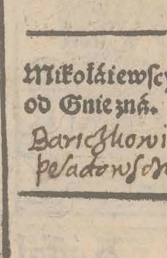 Mikołáiewscy
od Gniezná.
Bariczkowi
pesadowsch